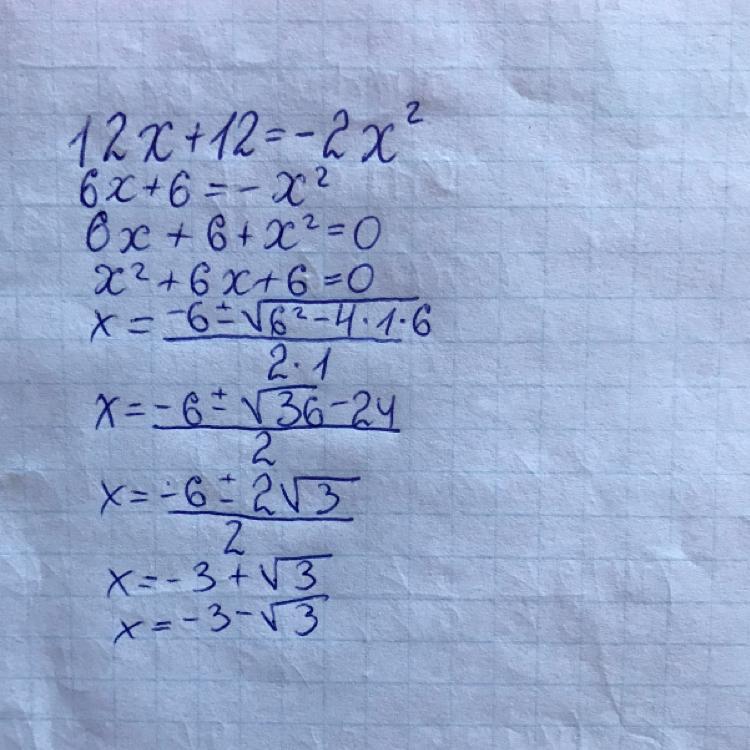 12x+12=-2x²
6x+6=-x²
6x+6+x²=0
x²+6x+6=0
x = (-6±√(6²-4·1·6))/(2·1)
x = (-6±√(36-24))/2
x = (-6±2√3)/2
x=-3+√3
x=-3-√3